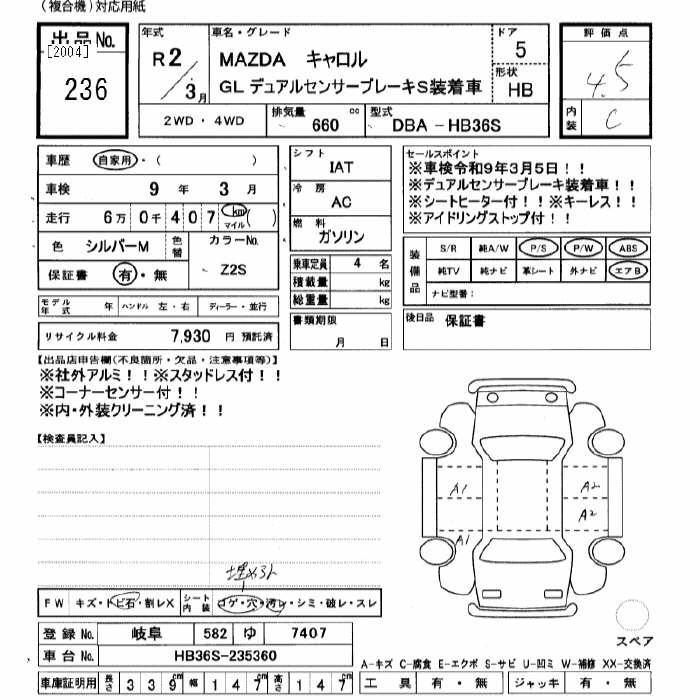 (複合機)対応用紙
出品No.
[2004]
236
年式
R2/3月
車名・グレード
MAZDA キャロル
GL デュアルセンサーブレーキS装着車
ドア
5
形状
HB
評価点
4.5
内装
C
2WD・4WD
排気量
660 cc
型式
DBA-HB36S
車歴 自家用・( )
車検 9年 3月
走行 6万 0千 4 0 7 km マイル ( )
色 シルバーM 色替
カラーNo.
Z2S
保証書 有・無
モデル年式 年 ハンドル 左・右 ディーラー・並行
リサイクル料金 7,930 円 預託済
シフト
IAT
冷房
AC
燃料
ガソリン
乗車定員 4 名
積載量 kg
総重量 kg
書類期限
月 日
セールスポイント
※車検令和9年3月5日!!
※デュアルセンサーブレーキ装着車!!
※シートヒーター付!!※キーレス!!
※アイドリングストップ付!!
装備品
S/R 純A/W P/S P/W ABS
純TV 純ナビ 革シート 外ナビ エアB
ナビ型番:
後日品 保証書
【出品店申告欄(不良箇所・欠品・注意事項等)】
※社外アルミ!!※スタッドレス付!!
※コーナーセンサー付!!
※内・外装クリーニング済!!
【検査員記入】
A1
A2
A2
A1
FW キズ・トビ石・割レX
シート内装 コゲ・穴・汚レ・シミ・破レ・スレ
スペア
登録No. 岐阜 582 ゆ 7407
車台No. HB36S-235360
A-キズ C-腐食 E-エクボ S-サビ U-凹ミ W-補修 XX-交換済
車庫証明用 長さ 339cm 幅 147cm 高さ 147cm
工具 有・無 ジャッキ 有・無